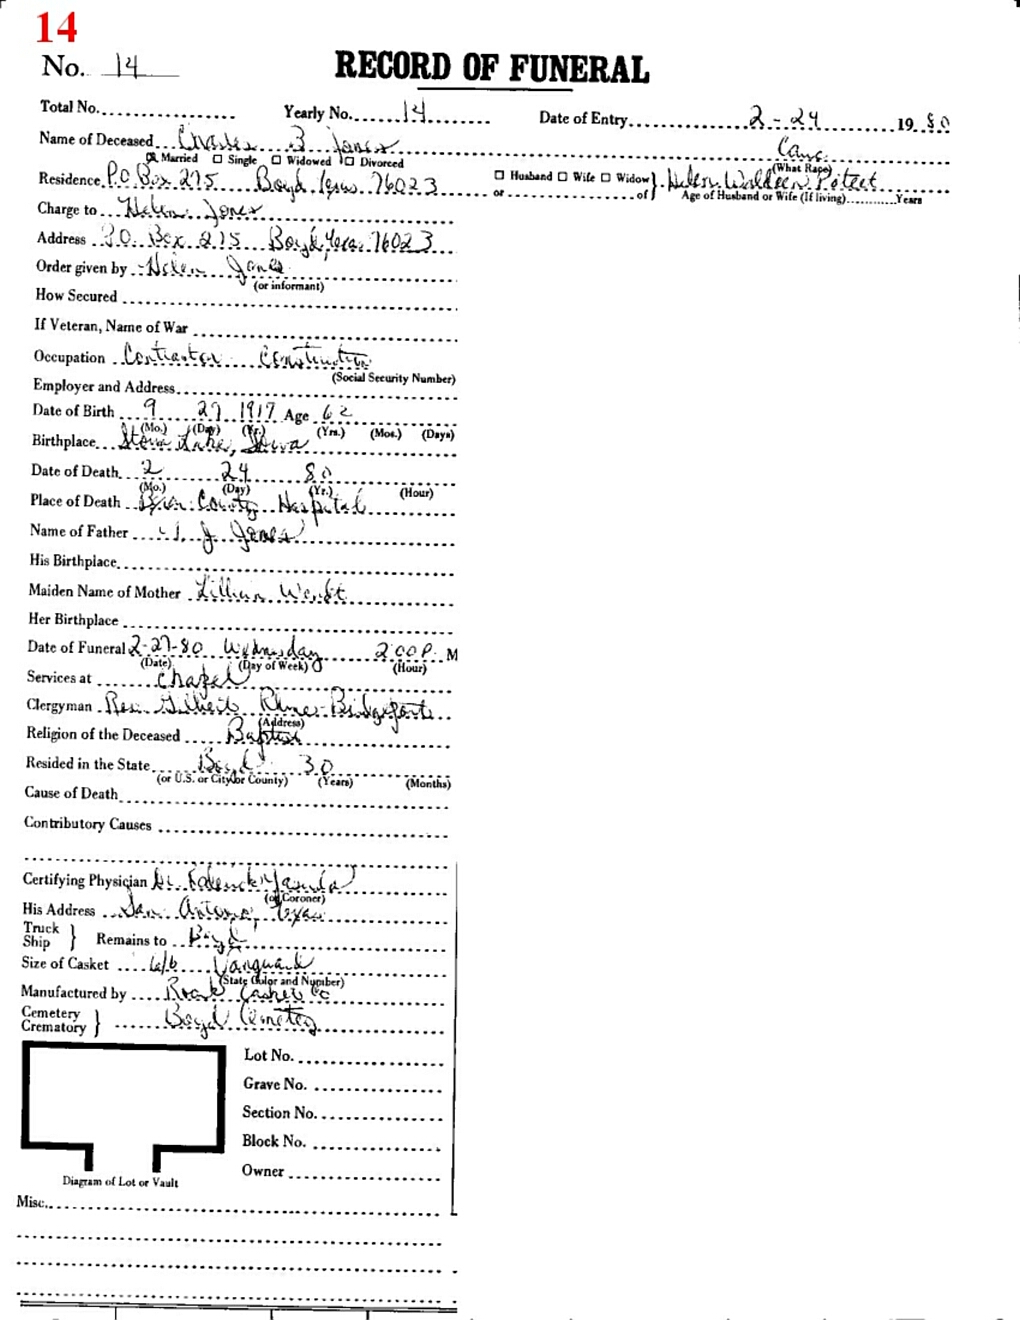 14
No. 14
RECORD OF FUNERAL
Total No. Yearly No. 14 Date of Entry 2-24 1980
Name of Deceased Charles B Jones Cauc.
Married Single Widowed Divorced (What Race)
Residence P.O. Box 275 Boyd, Texas. 76023 Husband Wife Widow or of Helen Poteet
Age of Husband or Wife (If living) Years
Charge to Helen Jones
Address P.O. Box 275 Boyd, Texas 76023
Order given by Helen Jones
(or informant)
How Secured
If Veteran, Name of War
Occupation Contractor Construction
(Social Security Number)
Employer and Address
Date of Birth 9 27 1917 Age 62
(Mo.) (Day) (Yr.) (Yrs.) (Mos.) (Days)
Birthplace Storm Lake, Iowa
Date of Death 2 24 80
(Mo.) (Day) (Yr.) (Hour)
Place of Death County Hospital
Name of Father J. Jones
His Birthplace
Maiden Name of Mother Lillian
Her Birthplace
Date of Funeral 2-27-80 Wednesday 2:00 P. M
(Date) (Day of Week) (Hour)
Services at Chapel
Clergyman Rev. Gilbert Bridgeport
(Address)
Religion of the Deceased Baptist
Resided in the State Boyd 30
(or U.S. or City or County) (Years) (Months)
Cause of Death
Contributory Causes
Certifying Physician Dr.
(or Coroner)
His Address San Antonio, Texas
Truck Ship Remains to Boyd
Size of Casket 6/6 Vanguard
(State Color and Number)
Manufactured by Casket Co
Cemetery Crematory Boyd Cemetery
Lot No.
Grave No.
Section No.
Block No.
Owner
Diagram of Lot or Vault
Misc.